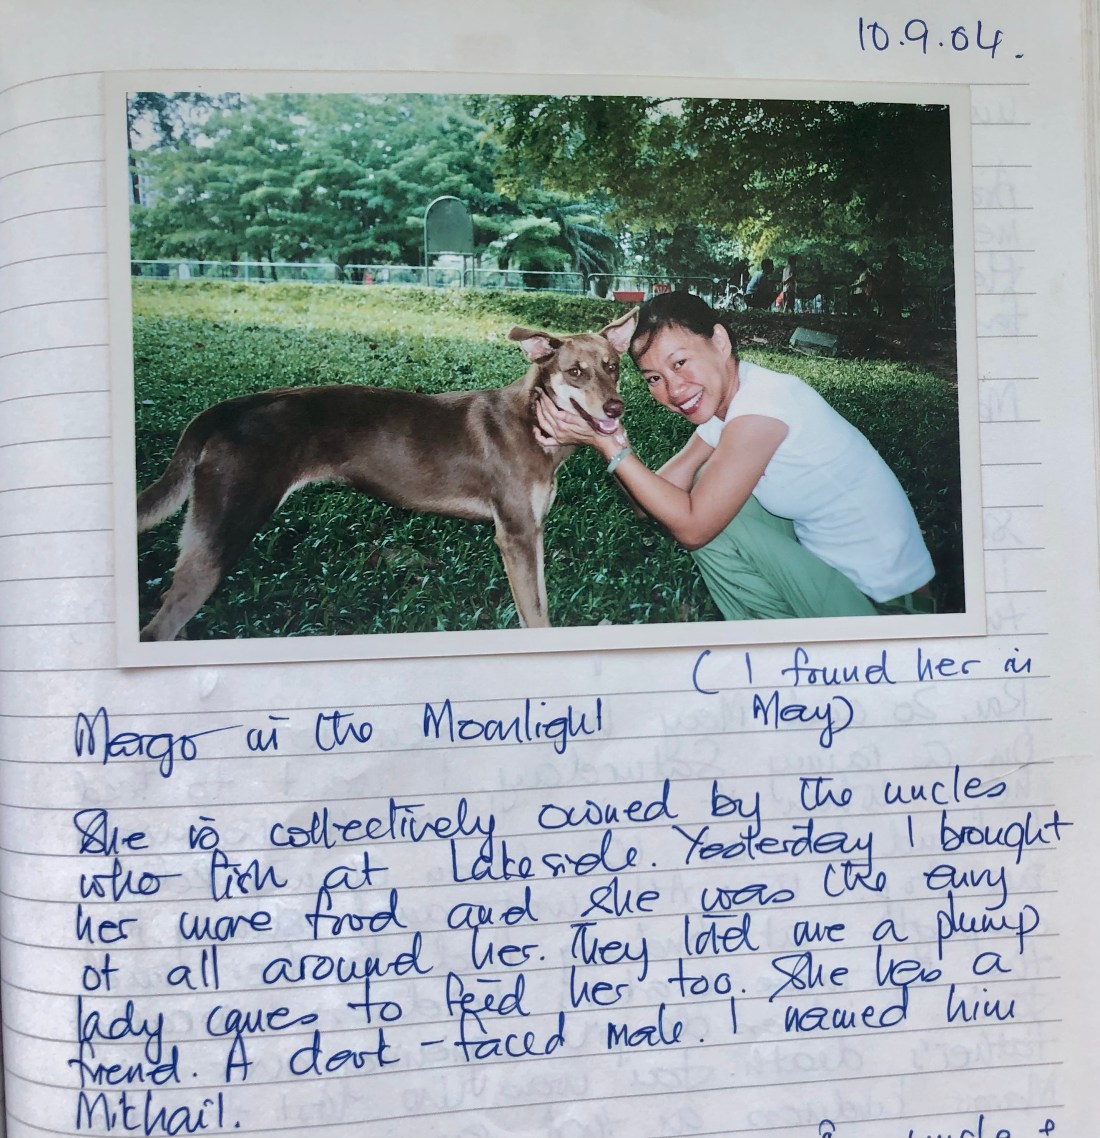 10.9.04.
( I found her in
Margo in the Moonlight May)
She is collectively owned by the uncles
who fish at Lakeside. Yesterday I brought
her more food and she was the envy
of all around her. They told me a plump
lady comes to feed her too. She has a
friend. A dark-faced male. I named him
Mikhail.
uncle &